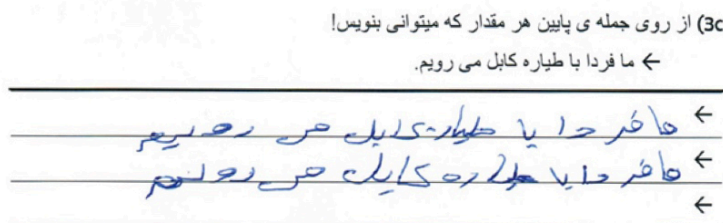 3c) از روی جمله ی پایین هر مقدار که میتوانی بنویس!
← ما فردا با طیاره کابل می رویم.
← ما فر دا با طیاره کابل می رویم
← ما فر دا با طیاره کابل می رویم
←